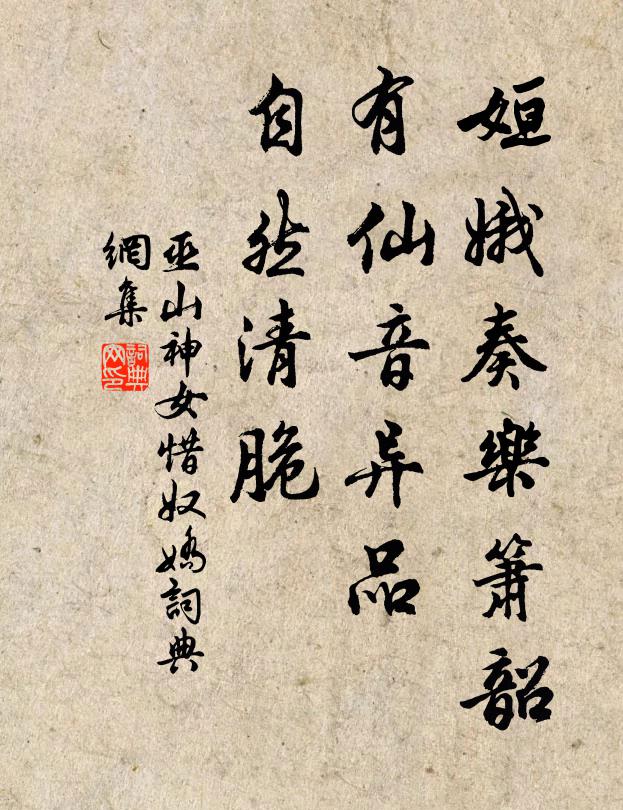 姮娥奏樂箫韶
有仙音异品
自然清脆
巫山神女惜奴嬌詞典
網集
詞典
网印